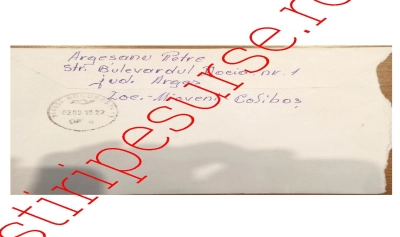 Argesanu Petre
Str. Bulevardul Dacia, nr. 1
jud. Argeș
Loc. Mioveni Colibași
02 09 18 22
stiripesurse.r